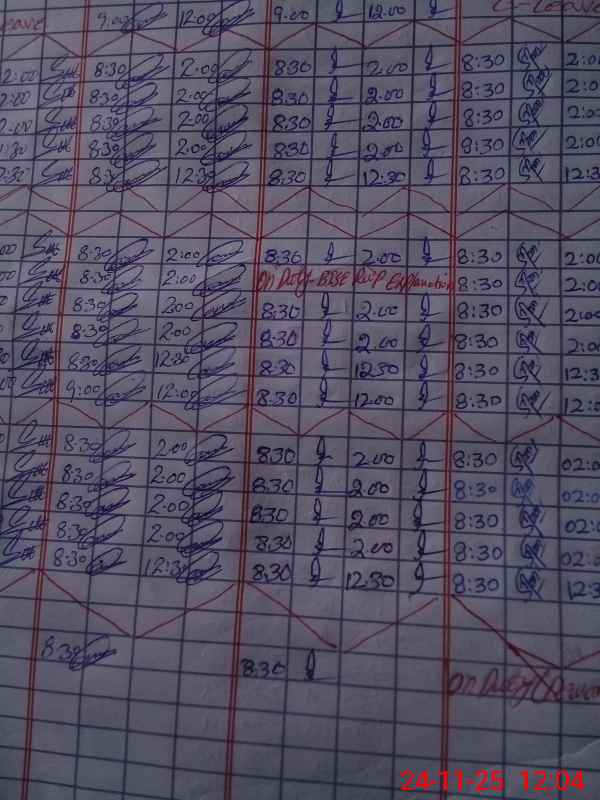 9:00 12:00 9.00 12.00 C-Leave
2:00 8:30 2.00 8:30 2.00 8:30 2:0
2:00 8:30 2.00 8:30 2.00 8:30 2:0
2:00 8:30 2:00 8:30 2.00 8:30 2:0
1:30 8:30 2.00 8:30 2.00 8:30 2:0
12:30 8:30 12:30 8:30 12.30 8:30 12:3
00 8:30 2:00 8:30 2.00 8:30 2:0
00 8:30 2:00 on Duty- 8:30 2:0
8:30 2:00 8:30 2.00 8:30 2:00
8:30 2.00 8:30 2.00 8:30 2:0
8:30 12:30 8:30 12.30 8:30 12:3
00 9:00 12:00 8:30 12.00 8:30 12:0
8:30 2.00 8:30 2.00 8:30 02:0
8:30 2.00 8:30 2.00 8:30 02:0
8:30 2.00 8:30 2.00 8:30 02:0
8:30 2.00 8:30 2.00 8:30 02:0
8:30 12:30 8:30 12.30 8:30 12:3
8:30 8:30 on Duty
24-11-25 12:04